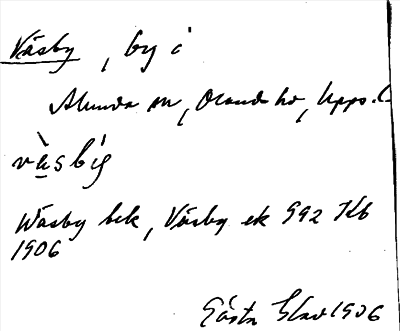 Väsby, by i
Alunda sn, Olands hd, Upps. l.
vä̀sbý
Wäsby bek, Väsby ek 992 Kb
1906
Gösta 1906